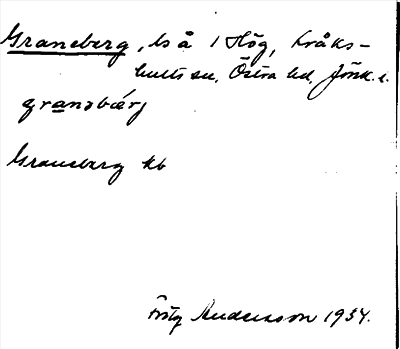 Graneberg, ls å 1 Hög, Kråks-
hults sn, Östra hd, Jönk. l.
granəbærj
Graneberg kb
Fritz Andersson 1934.